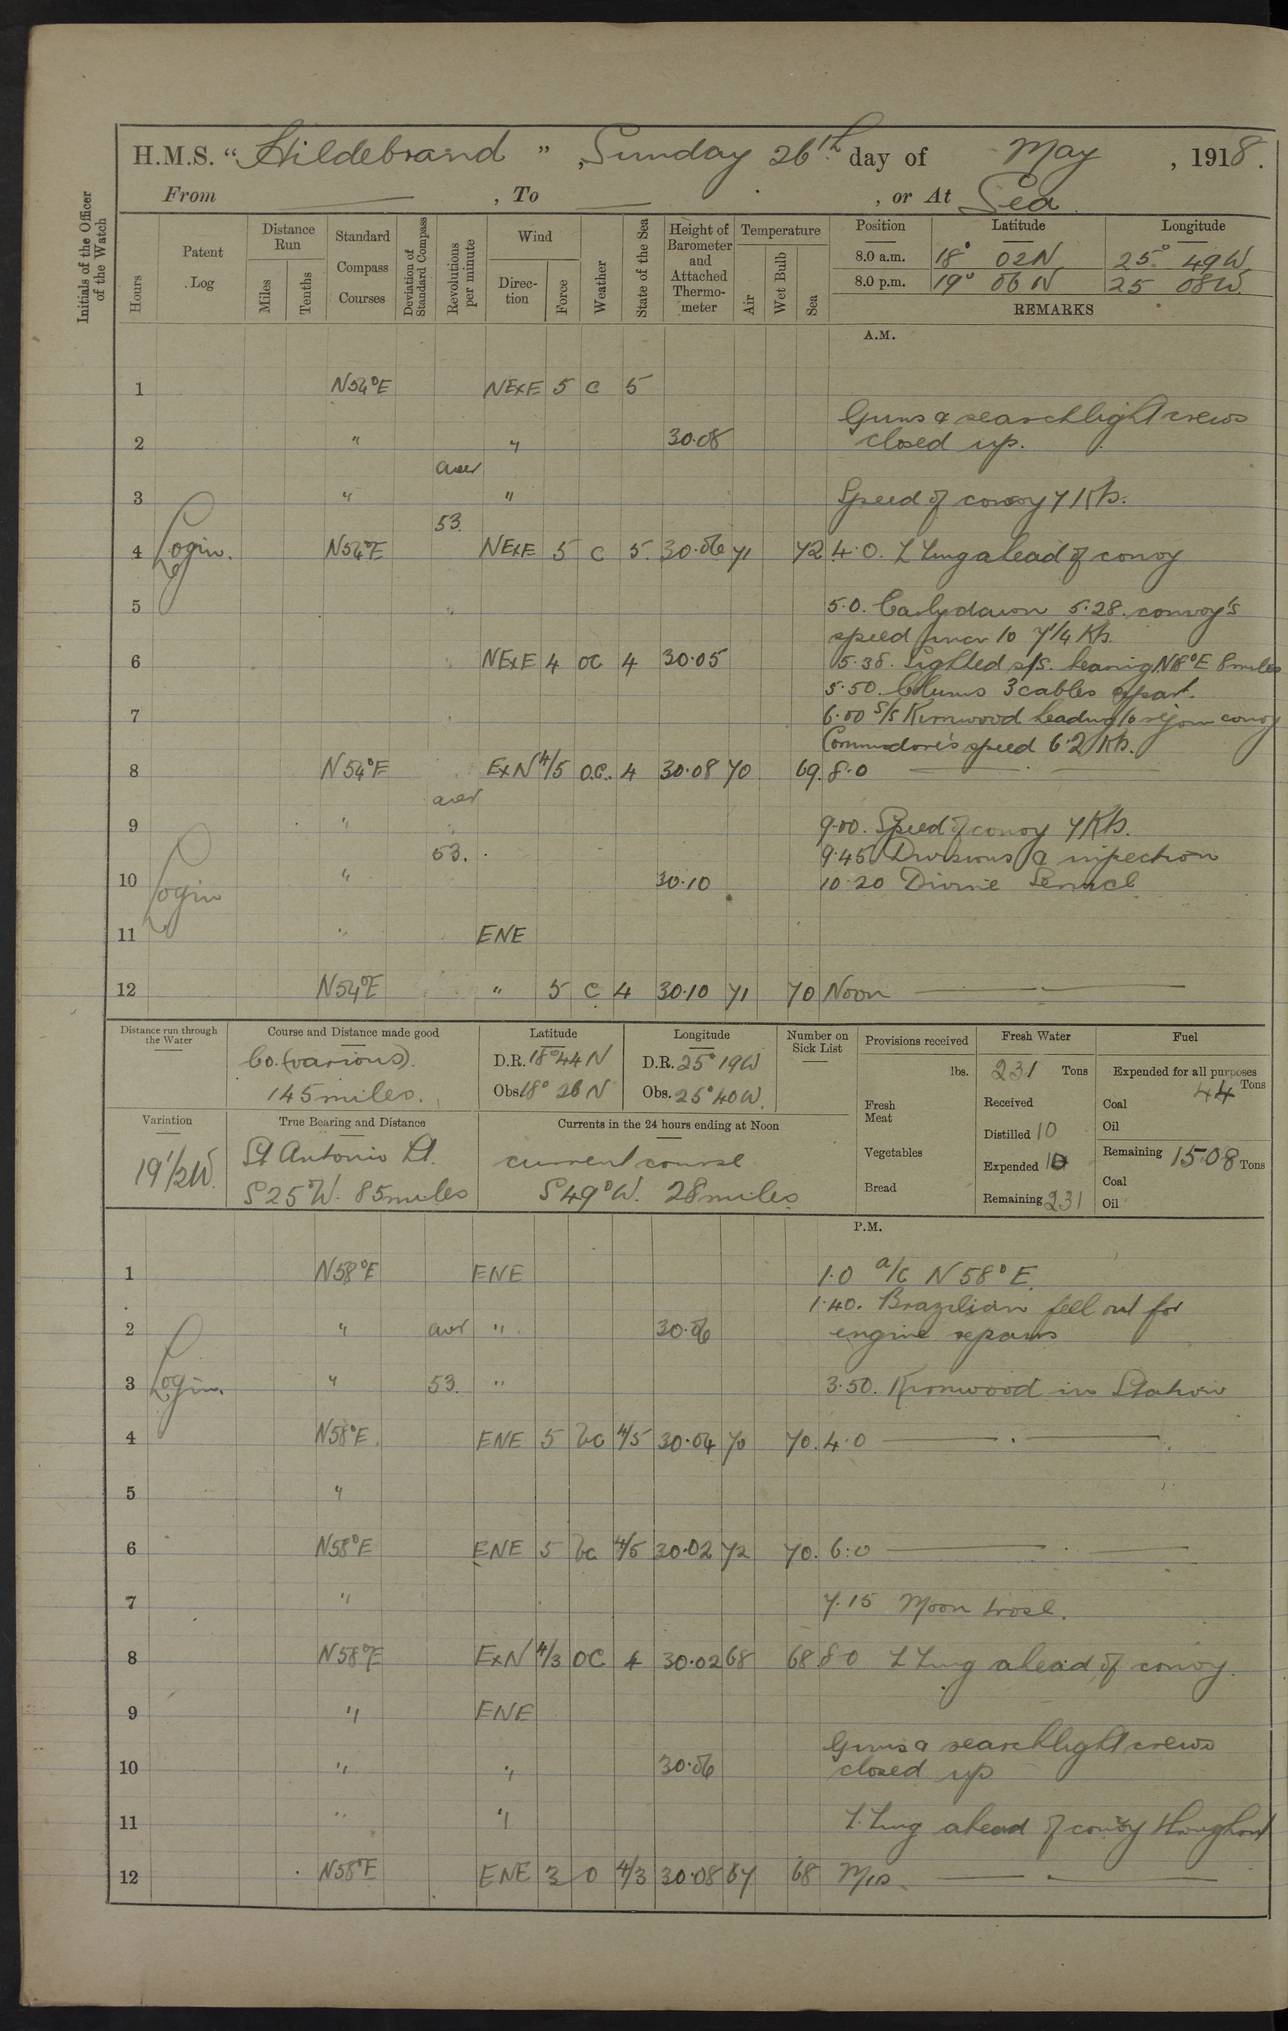 H.M.S. “Hildebrand”, Sunday 26th day of May, 1918.
From ——, To ——, or At Sea
Initials of the Officer of the Watch
Hours
Patent Log
Distance Run
Miles
Tenths
Standard Compass Courses
Deviation of Standard Compass
Revolutions per minute
Wind
Direction
Force
Weather
State of the Sea
Height of Barometer and Attached Thermometer
Temperature
Air
Wet Bulb
Sea
Position Latitude Longitude
8.0 a.m. 18° 02N 25° 49W
8.0 p.m. 19° 06N 25 08W
REMARKS
A.M.
1 N54°E NExE 5 C 5
Guns & searchlight crews
2 " " 30.08 closed up.
aver
3 " " Speed of convoy 7 Kts.
53.
4 N54°E NExE 5 C 5 30.06 71 72 4.0. ahead of convoy
Login.
5 5.0. Early dawn 5.28. convoy's
speed incr to 7 1/4 Kts.
6 NExE 4 OC 4 30.05 5.38. Sighted s/s. bearing N8°E 8miles
5.50. Colums 3 cables apart.
7 6.00 S/S Kirnwood heading to rejoin convoy
Commodore's speed 6.2 Kts.
8 N54°E ExN 4/5 O.C. 4 30.08 70 69. 8.0
aver
9 " 9.00. Speed of convoy 7 Kts.
53. 9.45 Divisions & inspection
10 " 30.10 10.20 Divine Service
Login
11 " ENE
12 N54°E " 5 C 4 30.10 71 70 Noon
Distance run through the Water
Course and Distance made good
Co. (various).
145 miles.
Latitude
D.R. 18°44N
Obs. 18° 26N
Longitude
D.R. 25° 19W
Obs. 25°40W.
Number on Sick List
Provisions received
lbs.
Fresh Meat
Vegetables
Bread
Fresh Water
231 Tons
Received
Distilled 10
Expended 10
Remaining 231
Fuel
Expended for all purposes
44 Tons
Coal
Oil
Remaining 1508 Tons
Coal
Oil
Variation
19 1/2W.
True Bearing and Distance
St Antonio Lt.
S25°W. 85miles
Currents in the 24 hours ending at Noon
current course
S49°W. 28miles
P.M.
1 N58°E ENE 1.0 a/c N58°E.
1.40. Brazilian fell out for
2 " aver " 30.06 engine repairs
3 Login. " 53. " 3.50. Kirnwood in Station
4 N58°E. ENE 5 bc 4/5 30.04 70 70. 4.0
5 "
6 N58°E ENE 5 bc 4/5 30.02 72 70. 6.0
7 " 7.15 Moon rose.
8 N58°E ExN 4/3 OC 4 30.02 68 68 8.0 ahead of convoy.
9 " ENE
Guns & searchlight crews
10 " " 30.06 closed up
11 " " ahead of convoy throughout
12 N58°E ENE 3 O 4/3 30.08 67 68 M/D.